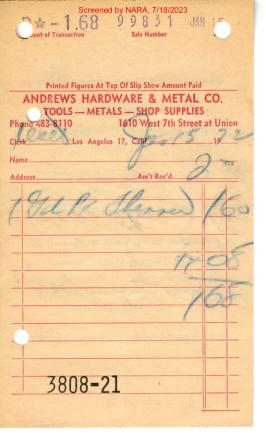 Screened by NARA, 7/18/2023
-1.68 99831 JAN 15
Amount of Transaction Sale Number
Printed Figures At Top Of Slip Show Amount Paid
ANDREWS HARDWARE & METAL CO.
TOOLS — METALS — SHOP SUPPLIES
Phone 483-8110 1610 West 7th Street at Union
Clerk Los Angeles 17, Calif. Jan 15 1972
Name
Address Am't Rec'd 2-
1 160
08
168
3808-21